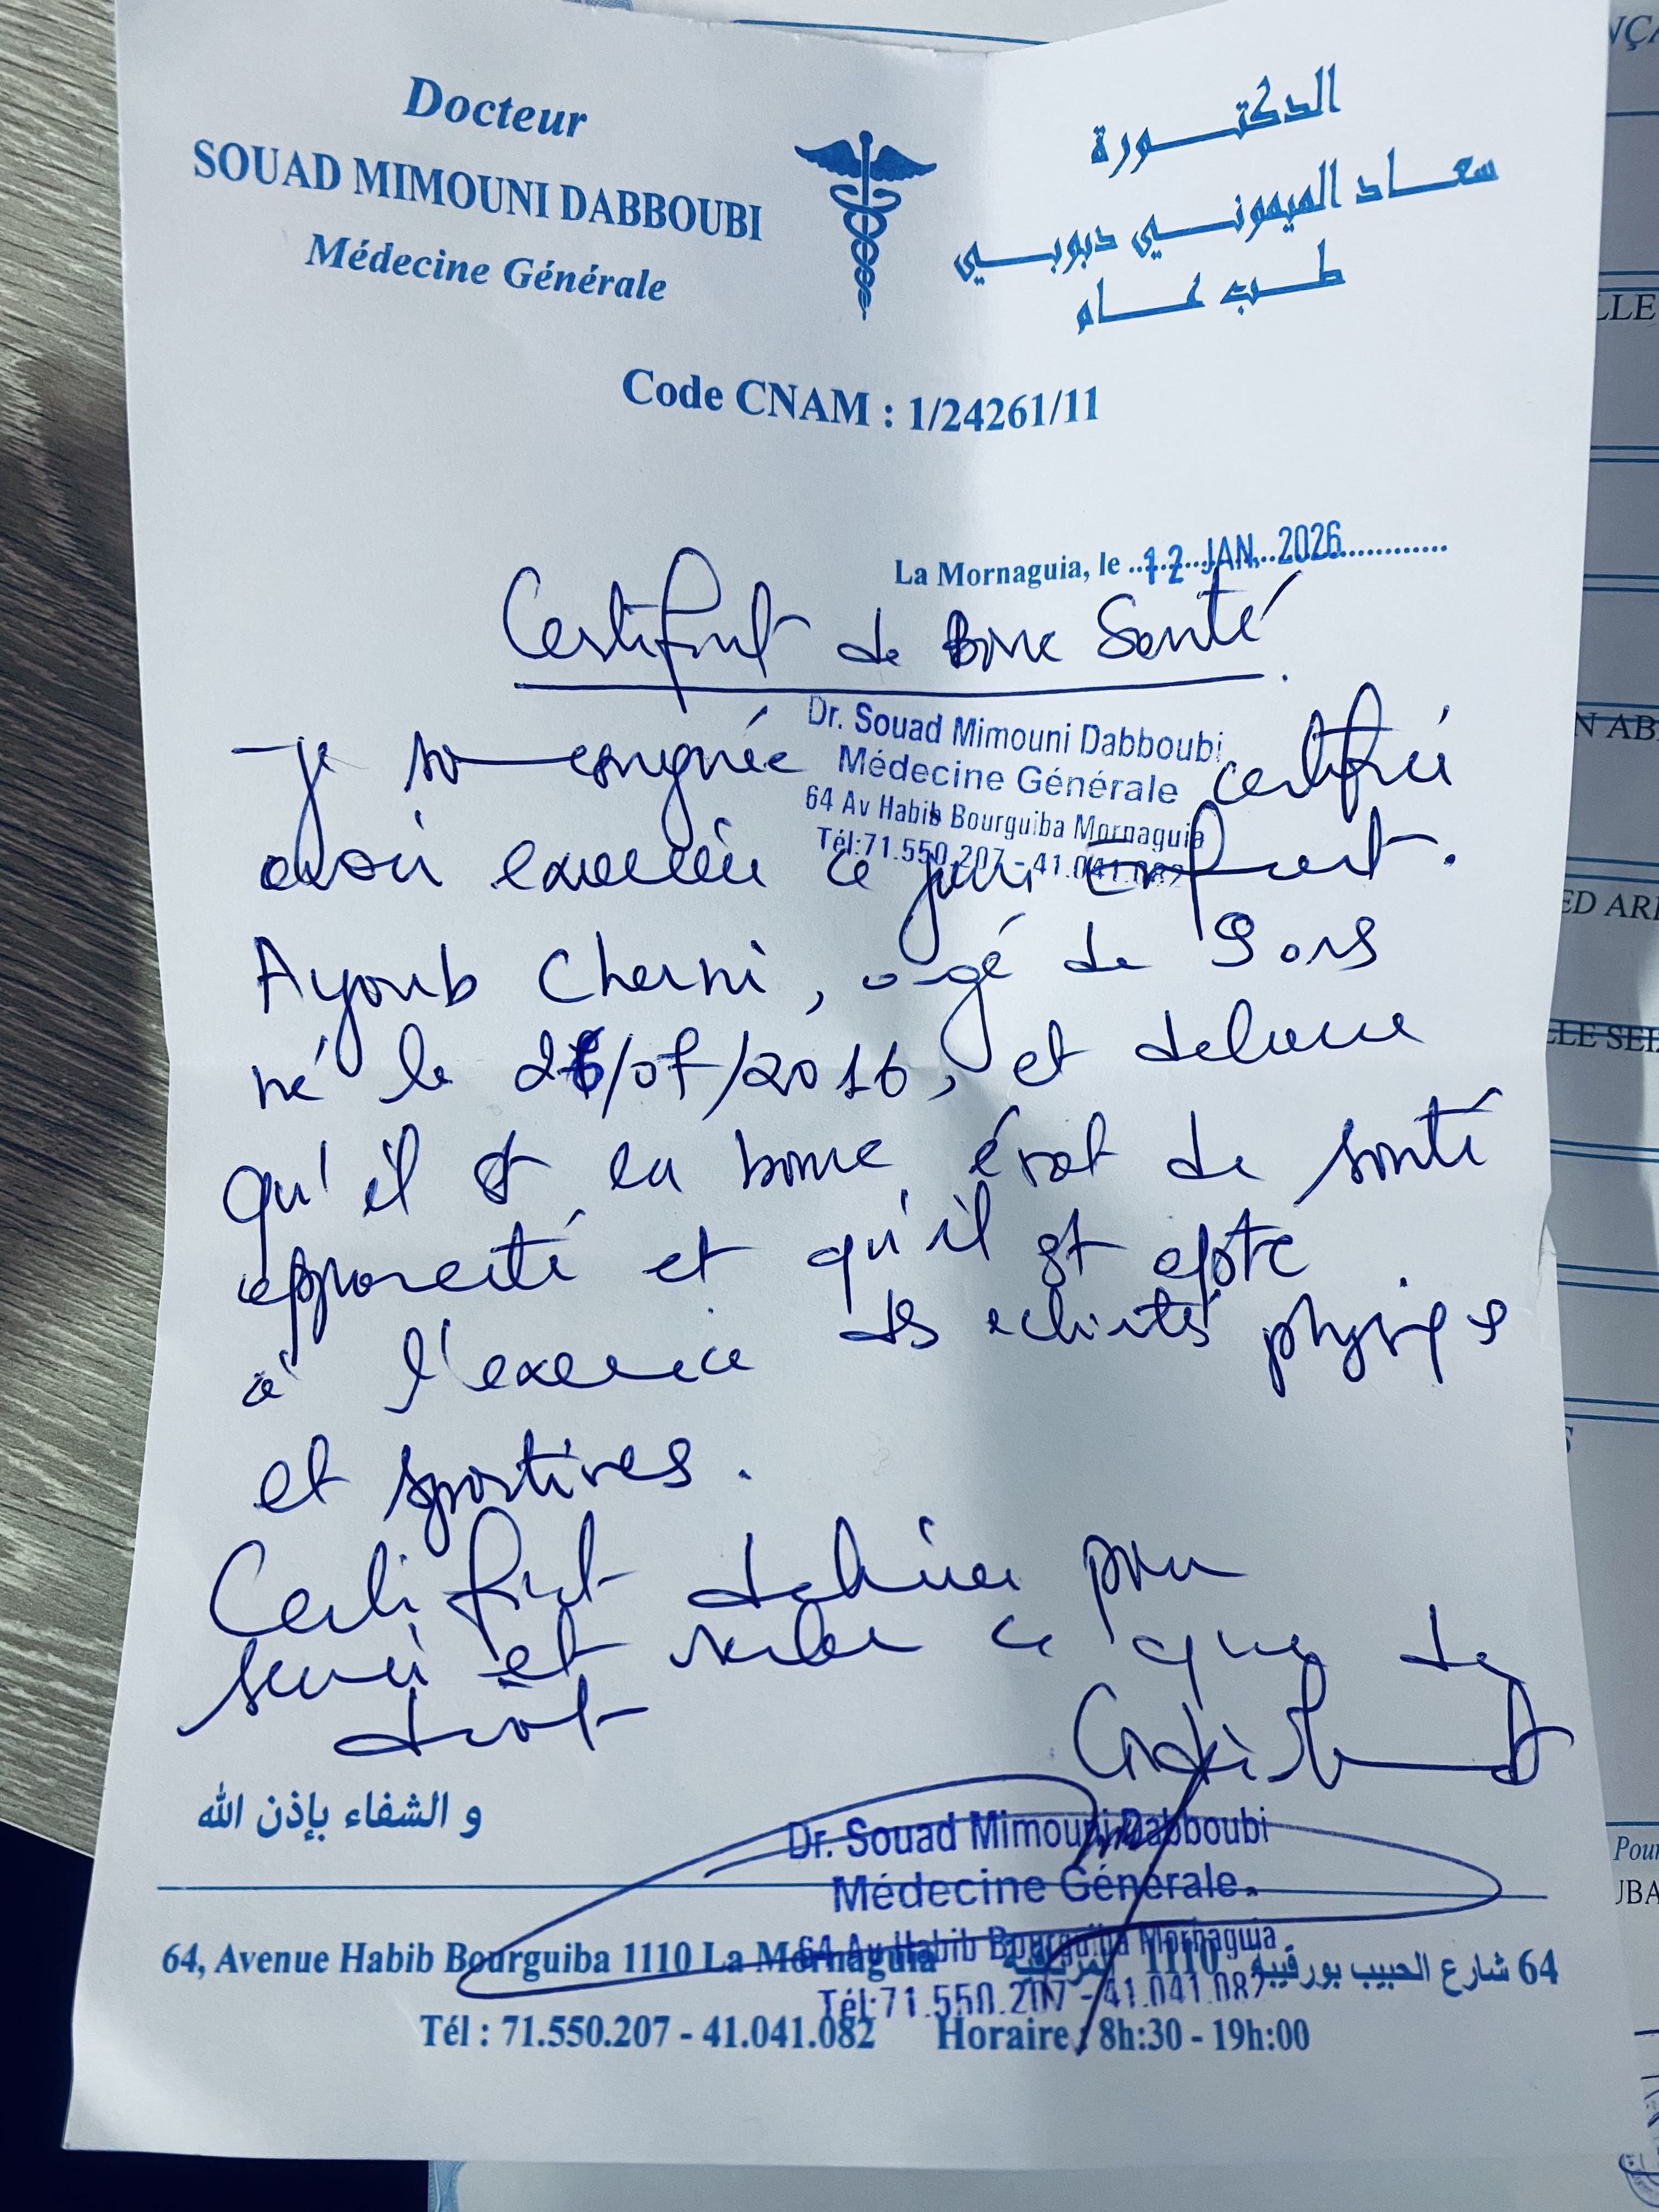 Docteur
SOUAD MIMOUNI DABBOUBI
Médecine Générale
الدكتورة
سعاد الميموني دبوبي
طب عام
Code CNAM : 1/24261/11
La Mornaguia, le 12 JAN. 2026
Certificat de Bonne Santé
Dr. Souad Mimouni Dabboubi
Médecine Générale
64 Av Habib Bourguiba Mornaguia
Tél:71.550.207 - 41.041.082
je soussignée certifie
avoir examiné ce jour Enfant.
Ayoub Cherni, agé de 9 ans
né le 26/07/2016, et déclare
qu'il est en bonne état de santé
apparente et qu'il est apte
à l'exercice des activités physiques
et sportives.
Certificat délivré pour
servir et valoir ce que de
droit
و الشفاء بإذن الله
Dr. Souad Mimouni Dabboubi
Médecine Générale
64 Av Habib Bourguiba Mornaguia
Tél:71.550.207 - 41.041.082
64, Avenue Habib Bourguiba 1110 La Mornaguia
64 شارع الحبيب بورقيبة 1110 المرناقية
Tél : 71.550.207 - 41.041.082 Horaire : 8h:30 - 19h:00